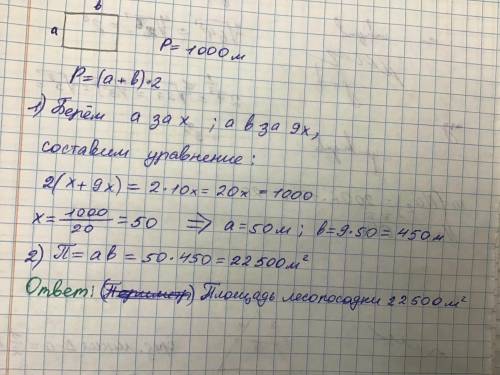 в
а
P = 1000 м
P = (а + в) · 2
1) Берём а за х ; а в за 9х,
составим уравнение:
2(х + 9х) = 2 · 10х = 20х = 1000
х = 1000/20 = 50 ⇒ а = 50 м ; в = 9 · 50 = 450 м
2) П = ав = 50 · 450 = 22500 м²
Ответ: (Периметр) Площадь лесопосадки 22500 м²